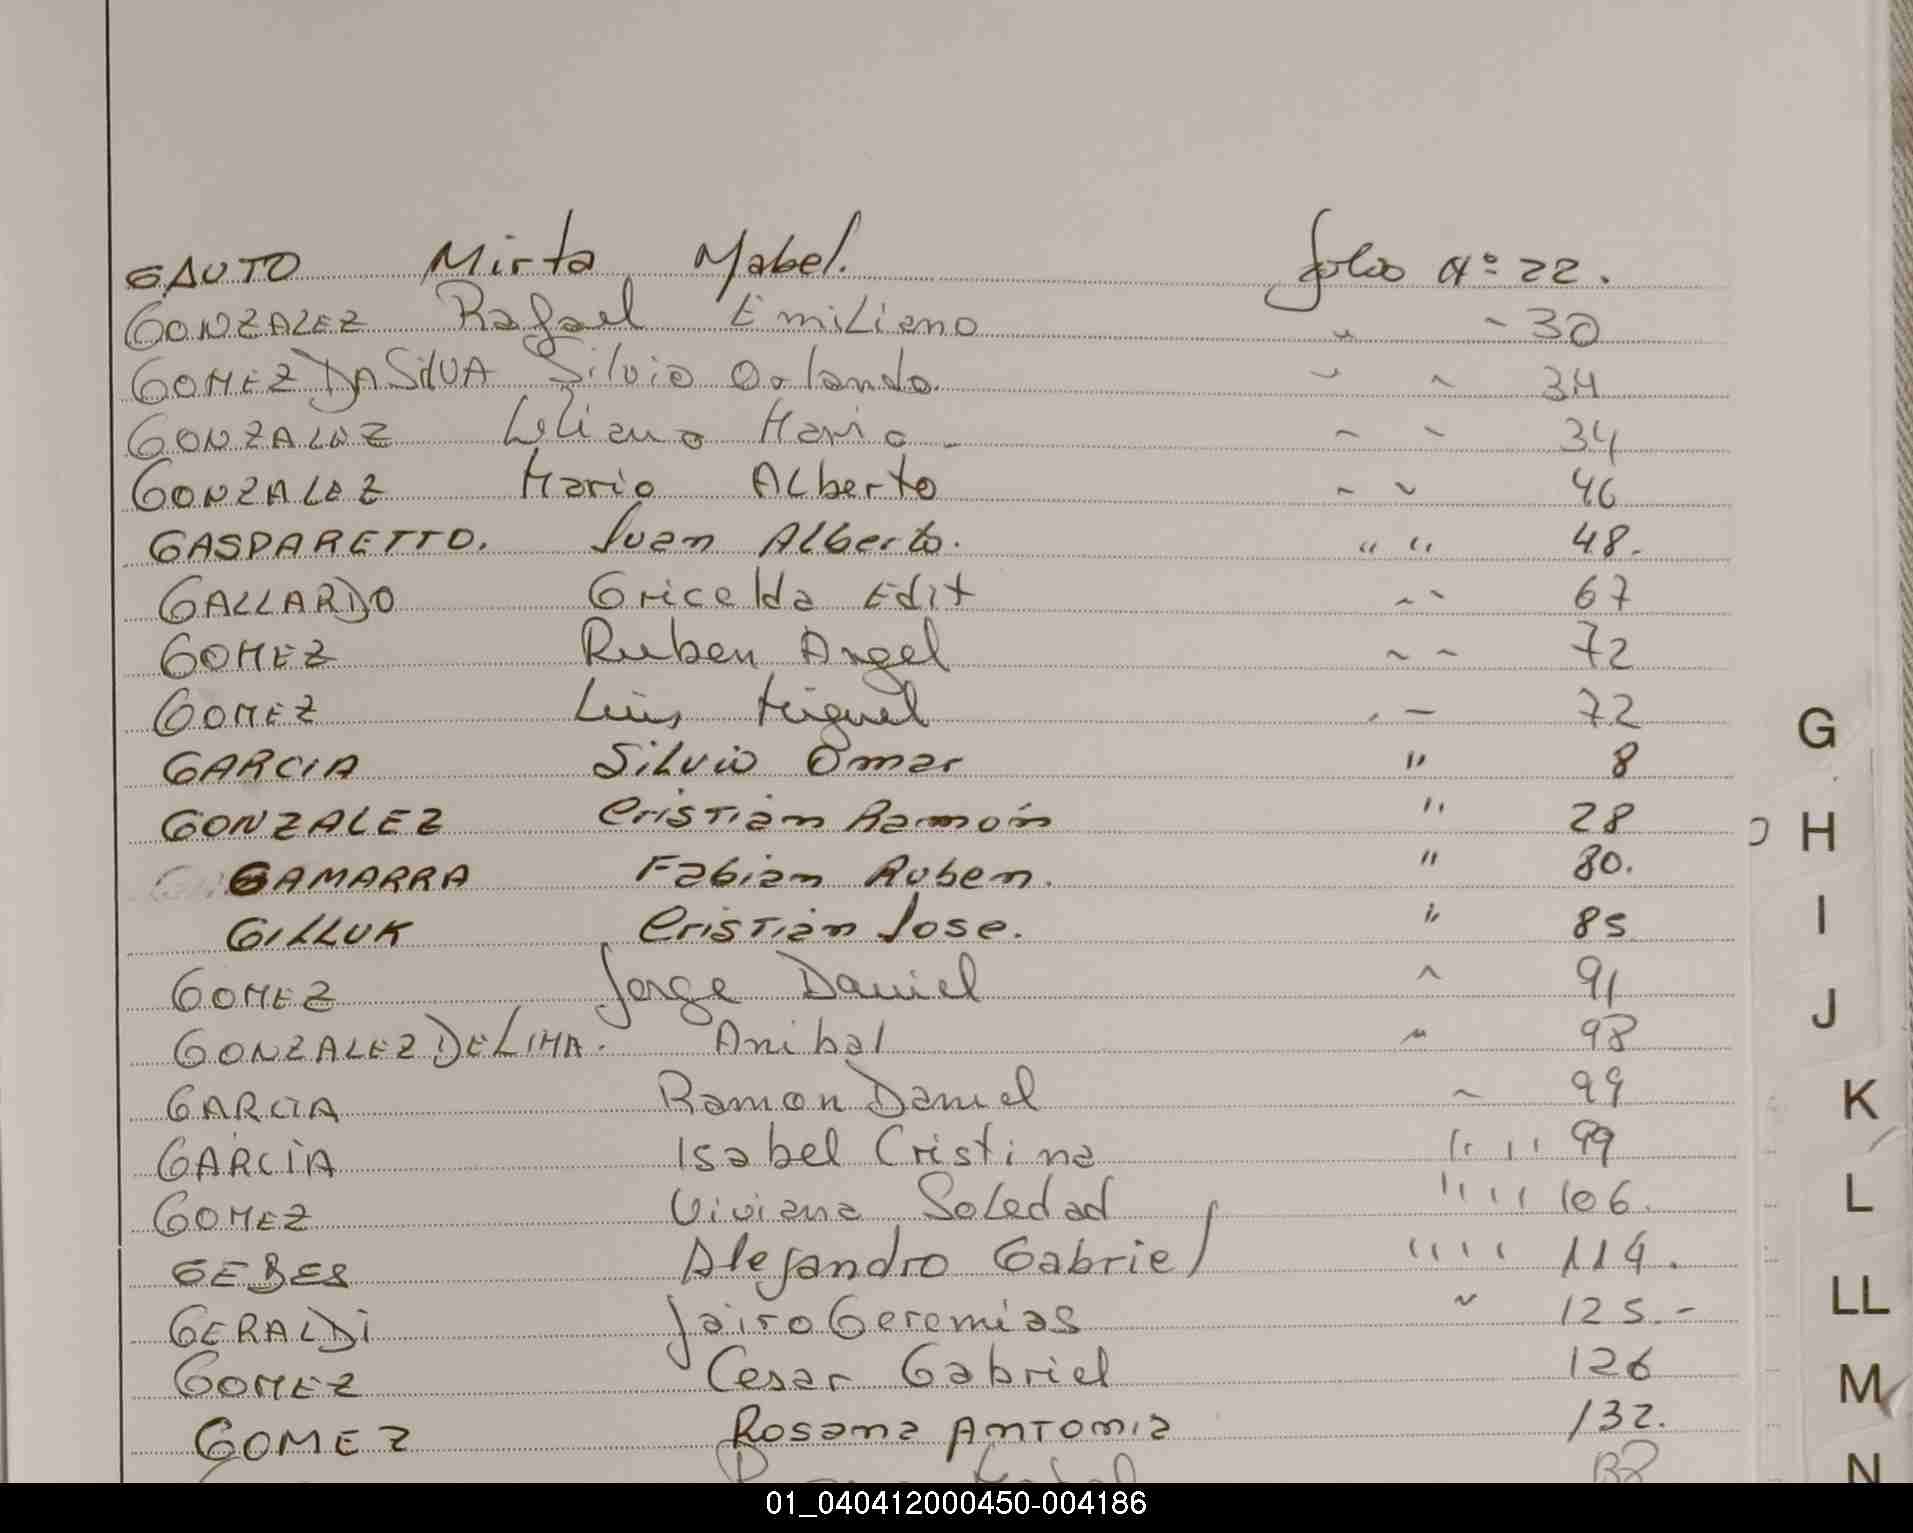 GAUTO Mirta Mabel. folio Nº 22.
GONZALEZ Rafael Emiliano " - 30
GOMEZ DA SilVA Silvio Orlando. " " 34
GONZALEZ Liliana Maria - " " 34
GONZALEZ Mario Alberto " " 46
GASPARETTO. Juan Alberto. " " 48.
GALLARDO Gricelda Edit " " 67
GOMEZ Ruben Angel " " 72
GOMEZ Luis Miguel " " 72
GARCIA Silvio Omar " 8
GONZALEZ Cristián Ramón " 28
GAMARRA Fabian Ruben. " 80.
GILLUK Cristián Jose. " 85
GOMEZ Jorge Daniel " 91
GONZALEZ DE LIMA. Anibal " 98
GARCIA Ramon Daniel " 99
GARCÍA Isabel Cristina " " 99
GOMEZ Viviana Soledad " " 106.
GEBES Alejandro Gabriel " " 114.
GERALDi Jairo Geremias " 125.-
GOMEZ Cesar Gabriel 126
GOMEZ Rosana Antonia 132.
G
H
I
J
K
L
LL
M
N
01_040412000450-004186